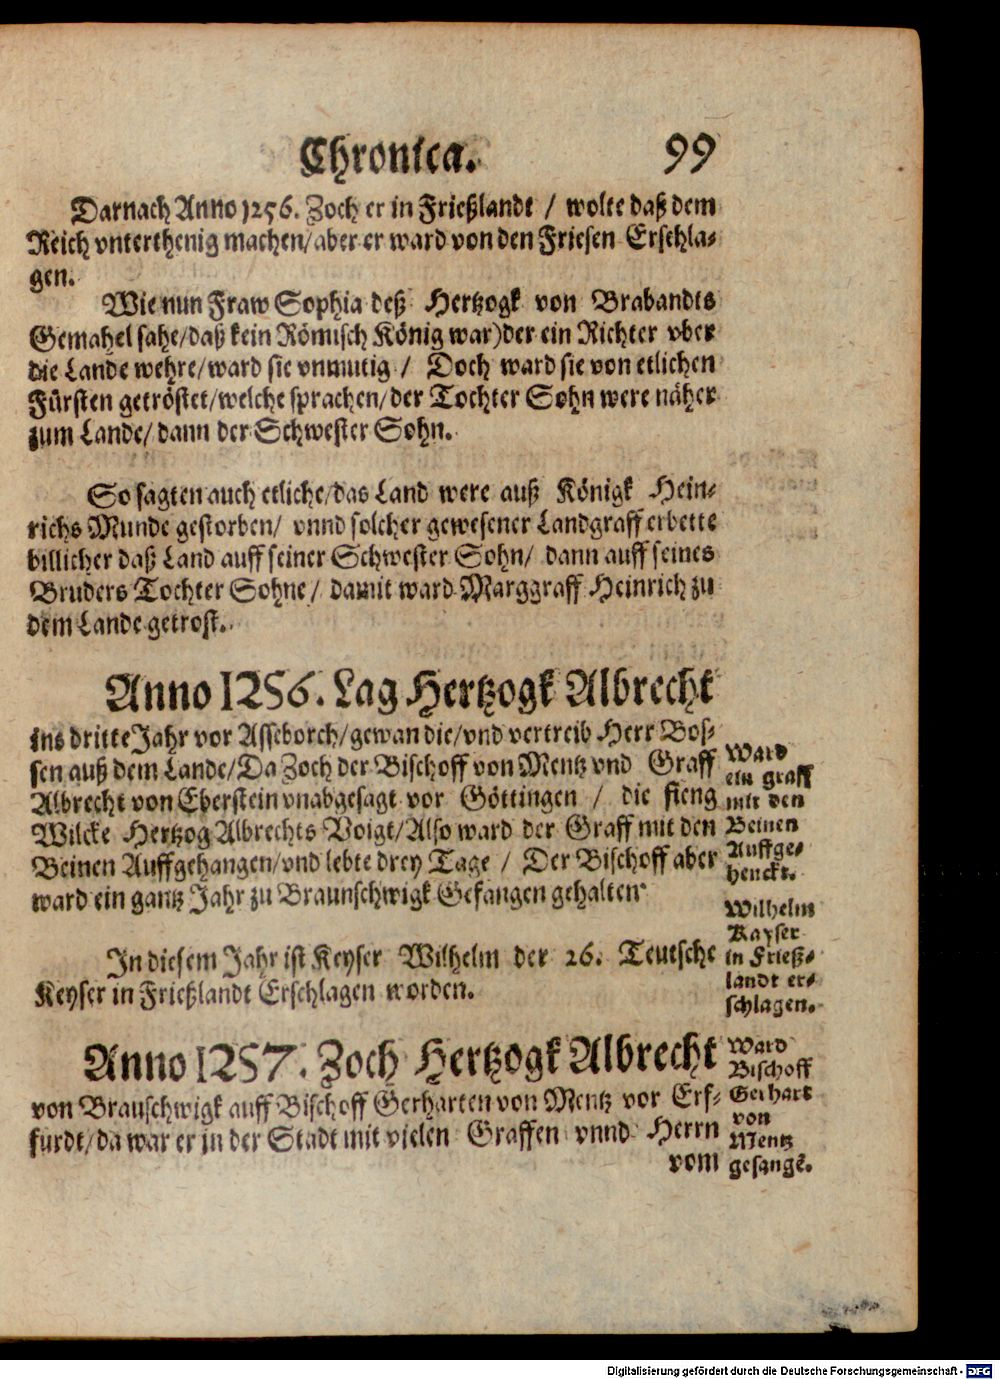 Chronica. 99
Darnach Anno 1256. Zoch er in Frießlandt / wolte daß dem
Reich vnterthenig machen/ aber er ward von den Friesen Erschla-
gen.
Wie nun Fraw Sophia deß Hertzogk von Brabandts
Gemahel sahe/daß kein Römisch König war)der ein Richter vber
die Lande wehre/ward sie vnmutig / Doch ward sie von etlichen
Fürsten getröstet/welche sprachen/der Tochter Sohn were näher
zum Lande/ dann der Schwester Sohn.
So sagten auch etliche/das Land were auß Königk Hein-
richs Munde gestorben/ vnnd solcher gewesener Landgraff erbette
billicher daß Land auff seiner Schwester Sohn/ dann auff seines
Bruders Tochter Sohne / damit ward Marggraff Heinrich zu
dem Lande getrost.
Anno 1256. Lag Hertzogk Albrecht
ins dritte Jahr vor Asseborch/gewan die/vnd vertreib Herr Bos-
sen auß dem Lande/Da Zoch der Bischoff von Mentz vnd Graff
Albrecht von Eberstein vnabgesagt vor Göttingen / die fieng
Wilcke Hertzog Albrechts Voigt/Also ward der Graff mit den
Beinen Auffgehangen/vnd lebte drey Tage / Der Bischoff aber
ward ein gantz Jahr zu Braunschwigk Gefangen gehalten
Ward
ein graff
mit den
Beinen
Auffge-
henckt.
In diesem Jahr ist Keyser Wilhelm der 26. Teutsche
Keyser in Frießlandt Erschlagen worden.
Wilhelm
Kayser
in Frieß-
landt er-
schlagen.
Anno 1257. Zoch Hertzogk Albrecht
von Brauschwigk auff Bischoff Gerharten von Mentz vor Erf-
furdt/da war er in der Stadt mit vielen Graffen vnnd Herrn
vom
Ward
Bischoff
Gerhart
von
Mentz
gefangẽ.
Digitalisierung gefördert durch die Deutsche Forschungsgemeinschaft - DFG